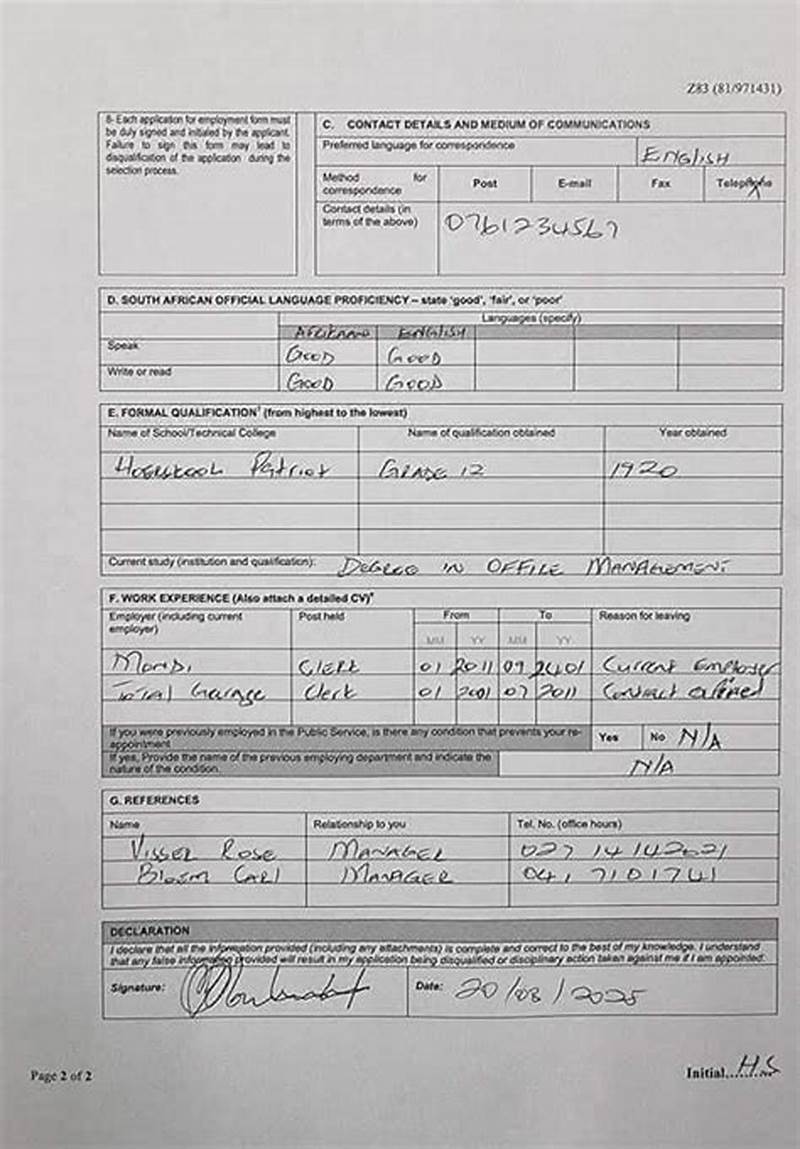 Z83 (81/971431)
8- Each application for employment form must
be duly signed and initialed by the applicant.
Failure to sign this form may lead to
disqualification of the application during the
selection process.
C. CONTACT DETAILS AND MEDIUM OF COMMUNICATIONS
Preferred language for correspondence
ENGLISH
Method for correspondence Post E-mail Fax Telephone
Contact details (in
terms of the above) 0761234567
D. SOUTH AFRICAN OFFICIAL LANGUAGE PROFICIENCY – state 'good', 'fair', or 'poor'
Languages (specify)
ENGLISH
Speak GOOD GOOD
Write or read GOOD GOOD
E. FORMAL QUALIFICATION¹ (from highest to the lowest)
Name of School/Technical College Name of qualification obtained Year obtained
Patriot GRADE 12 1920
Current study (institution and qualification): DEGREE IN OFFICE MANAGEMENT
F. WORK EXPERIENCE (Also attach a detailed CV)
Employer (including current
employer) Post held From To Reason for leaving
MM YY MM YY
CLERK 01 2011 09 2401 Current Employer
Total Garage Clerk 01 2001 07 2011 Contract
If you were previously employed in the Public Service, is there any condition that prevents your re-
appointment Yes No N/A
If yes, Provide the name of the previous employing department and indicate the
nature of the condition. N/A
G. REFERENCES
Name Relationship to you Tel. No. (office hours)
Visser Rose MANAGER
Bloem Carl MANAGER 041 7101741
DECLARATION
I declare that all the information provided (including any attachments) is complete and correct to the best of my knowledge. I understand
that any false information provided will result in my application being disqualified or disciplinary action taken against me if I am appointed.
Signature: Date: 20/08/2025
Page 2 of 2
Initial........ H.S